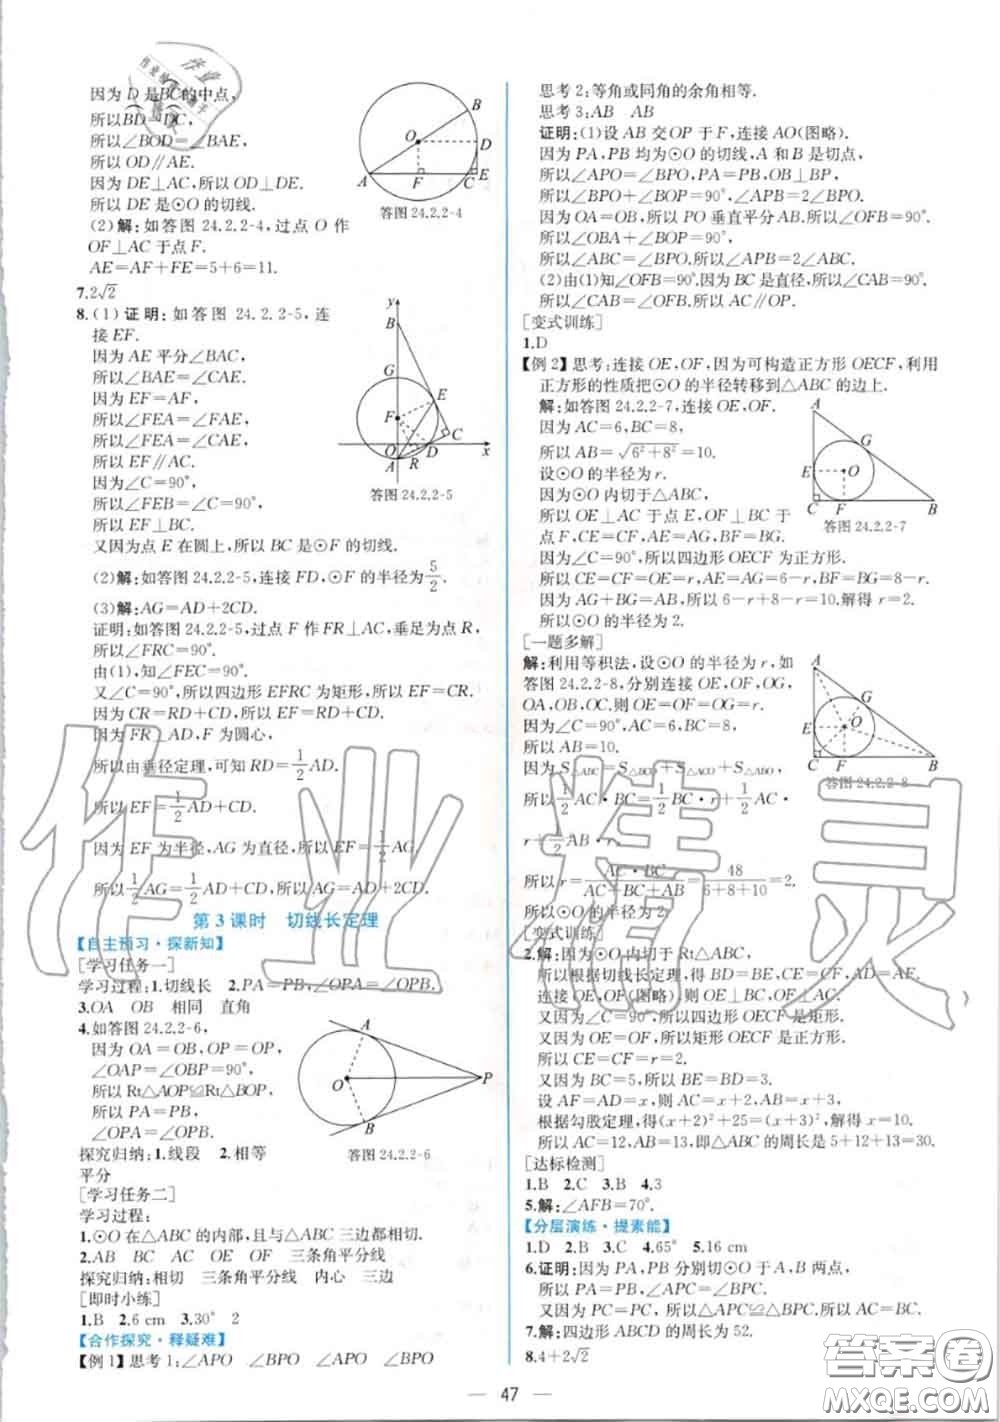 因为D是BC的中点,
所以BD=DC,
所以∠BOD=∠BAE,
所以OD∥AE.
因为DE⊥AC,所以OD⊥DE.
所以DE是⊙O的切线.
(2)解:如答图 24.2.2-4,过点 O 作
OF⊥AC于点F.
AE=AF+FE=5+6=11.
B
O
D
A
F
C
E
答图 24.2.2-4
7.2√2
8.(1)证明:如答图 24.2.2-5,连
接EF.
因为 AE平分∠BAC,
所以∠BAE=∠CAE.
因为EF=AF,
所以∠FEA=∠FAE,
所以∠FEA=∠CAE,
所以EF∥AC.
因为∠C=90°,
所以∠FEB=∠C=90°,
所以EF⊥BC.
又因为点E在圆上,所以BC是⊙F的切线.
y
B
G
E
F
C
O
D
A
R
x
答图24.2.2-5
(2)解:如答图24.2.2-5,连接FD,⊙F的半径为5/2.
(3)解:AG=AD+2CD.
证明:如答图24.2.2-5,过点F作FR⊥AC,垂足为点R,
所以∠FRC=90°.
由(1),知∠FEC=90°.
又∠C=90°,所以四边形EFRC为矩形,所以EF=CR.
因为CR=RD+CD,所以EF=RD+CD.
因为FR⊥AD,F为圆心,
所以由垂径定理,可知RD=1/2AD.
所以EF=1/2AD+CD.
因为EF为半径,AG为直径,所以EF=1/2AG.
所以1/2AG=1/2AD+CD,所以AG=AD+2CD.
第3课时 切线长定理
【自主预习·探新知】
[学习任务一]
学习过程:1.切线长 2.PA=PB,∠OPA=∠OPB.
3.OA OB 相同 直角
4.如答图24.2.2-6,
因为OA=OB,OP=OP,
∠OAP=∠OBP=90°,
所以Rt△AOP≌Rt△BOP,
所以PA=PB,
∠OPA=∠OPB.
A
O
P
B
答图24.2.2-6
探究归纳:1.线段 2.相等
平分
[学习任务二]
学习过程:
1.⊙O在△ABC的内部,且与△ABC三边都相切.
2.AB BC AC OE OF 三条角平分线
探究归纳:相切 三条角平分线 内心 三边
[即时小练]
1.B 2.6 cm 3.30° 2
【合作探究·释疑难】
【例1】思考1:∠APO ∠BPO ∠APO ∠BPO
思考2:等角或同角的余角相等.
思考3:AB AB
证明:(1)设AB交OP于F,连接AO(图略).
因为PA,PB均为⊙O的切线,A和B是切点,
所以∠APO=∠BPO,PA=PB,OB⊥BP.
所以∠BPO+∠BOP=90°,∠APB=2∠BPO.
因为OA=OB,所以PO垂直平分AB.所以∠OFB=90°.
所以∠OBA+∠BOP=90°,
所以∠ABC=∠BPO.所以∠APB=2∠ABC.
(2)由(1)知∠OFB=90°.因为BC是直径,所以∠CAB=90°.
所以∠CAB=∠OFB,所以AC∥OP.
[变式训练]
1.D
【例2】思考:连接OE,OF,因为可构造正方形OECF,利用
正方形的性质把⊙O的半径转移到△ABC的边上.
解:如答图24.2.2-7,连接OE,OF.
因为AC=6,BC=8,
所以AB=√(6²+8²)=10.
设⊙O的半径为r.
因为⊙O内切于△ABC,
所以OE⊥AC于点E,OF⊥BC于
点F,CE=CF,AE=AG,BF=BG.
因为∠C=90°,所以四边形OECF为正方形.
所以CE=CF=OE=r,AE=AG=6-r,BF=BG=8-r.
因为AG+BG=AB,所以6-r+8-r=10.解得r=2.
所以⊙O的半径为2.
A
G
E
O
C
F
B
答图24.2.2-7
[一题多解]
解:利用等积法,设⊙O的半径为r,如
答图24.2.2-8,分别连接OE,OF,OG,
OA,OB,OC.则OE=OF=OG=r.
因为∠C=90°,AC=6,BC=8,
所以AB=10.
因为S△ABC=S△BCO+S△ACO+S△ABO,
所以1/2AC·BC=1/2BC·r+1/2AC·
r+1/2AB·r.
所以r=AC·BC/(AC+BC+AB)=48/(6+8+10)=2.
所以⊙O的半径为2.
A
G
E
O
C
F
B
答图24.2.2-8
[变式训练]
2.解:因为⊙O内切于Rt△ABC,
所以根据切线长定理,得BD=BE,CE=CF,AD=AF.
连接OE,OF(图略).则OE⊥BC,OF⊥AC.
又因为∠C=90°,所以四边形OECF是矩形.
又因为OE=OF,所以矩形OECF是正方形.
所以CE=CF=r=2.
又因为BC=5,所以BE=BD=3.
设AF=AD=x,则AC=x+2,AB=x+3.
根据勾股定理,得(x+2)²+25=(x+3)²,解得x=10.
所以AC=12,AB=13,即△ABC的周长是5+12+13=30.
[达标检测]
1.B 2.C 3.B 4.3
5.解:∠AFB=70°.
【分层演练·提素能】
1.D 2.B 3.C 4.65° 5.16 cm
6.证明:因为PA,PB分别切⊙O于A,B两点,
所以PA=PB,∠APC=∠BPC.
又因为PC=PC,所以△APC≌△BPC.所以AC=BC.
7.解:四边形ABCD的周长为52.
8.4+2√2
47
作业精灵
答案圈
MXQE.COM